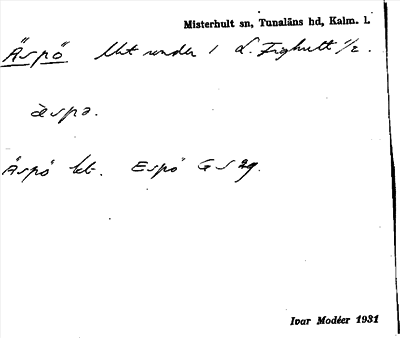 Misterhult sn, Tunaläns hd, Kalm. L
Äspö Utt under 1 L. Fighult 1/2.
äspə.
Äspö kt. Espö GS 29.
Ivar Modéer 1931